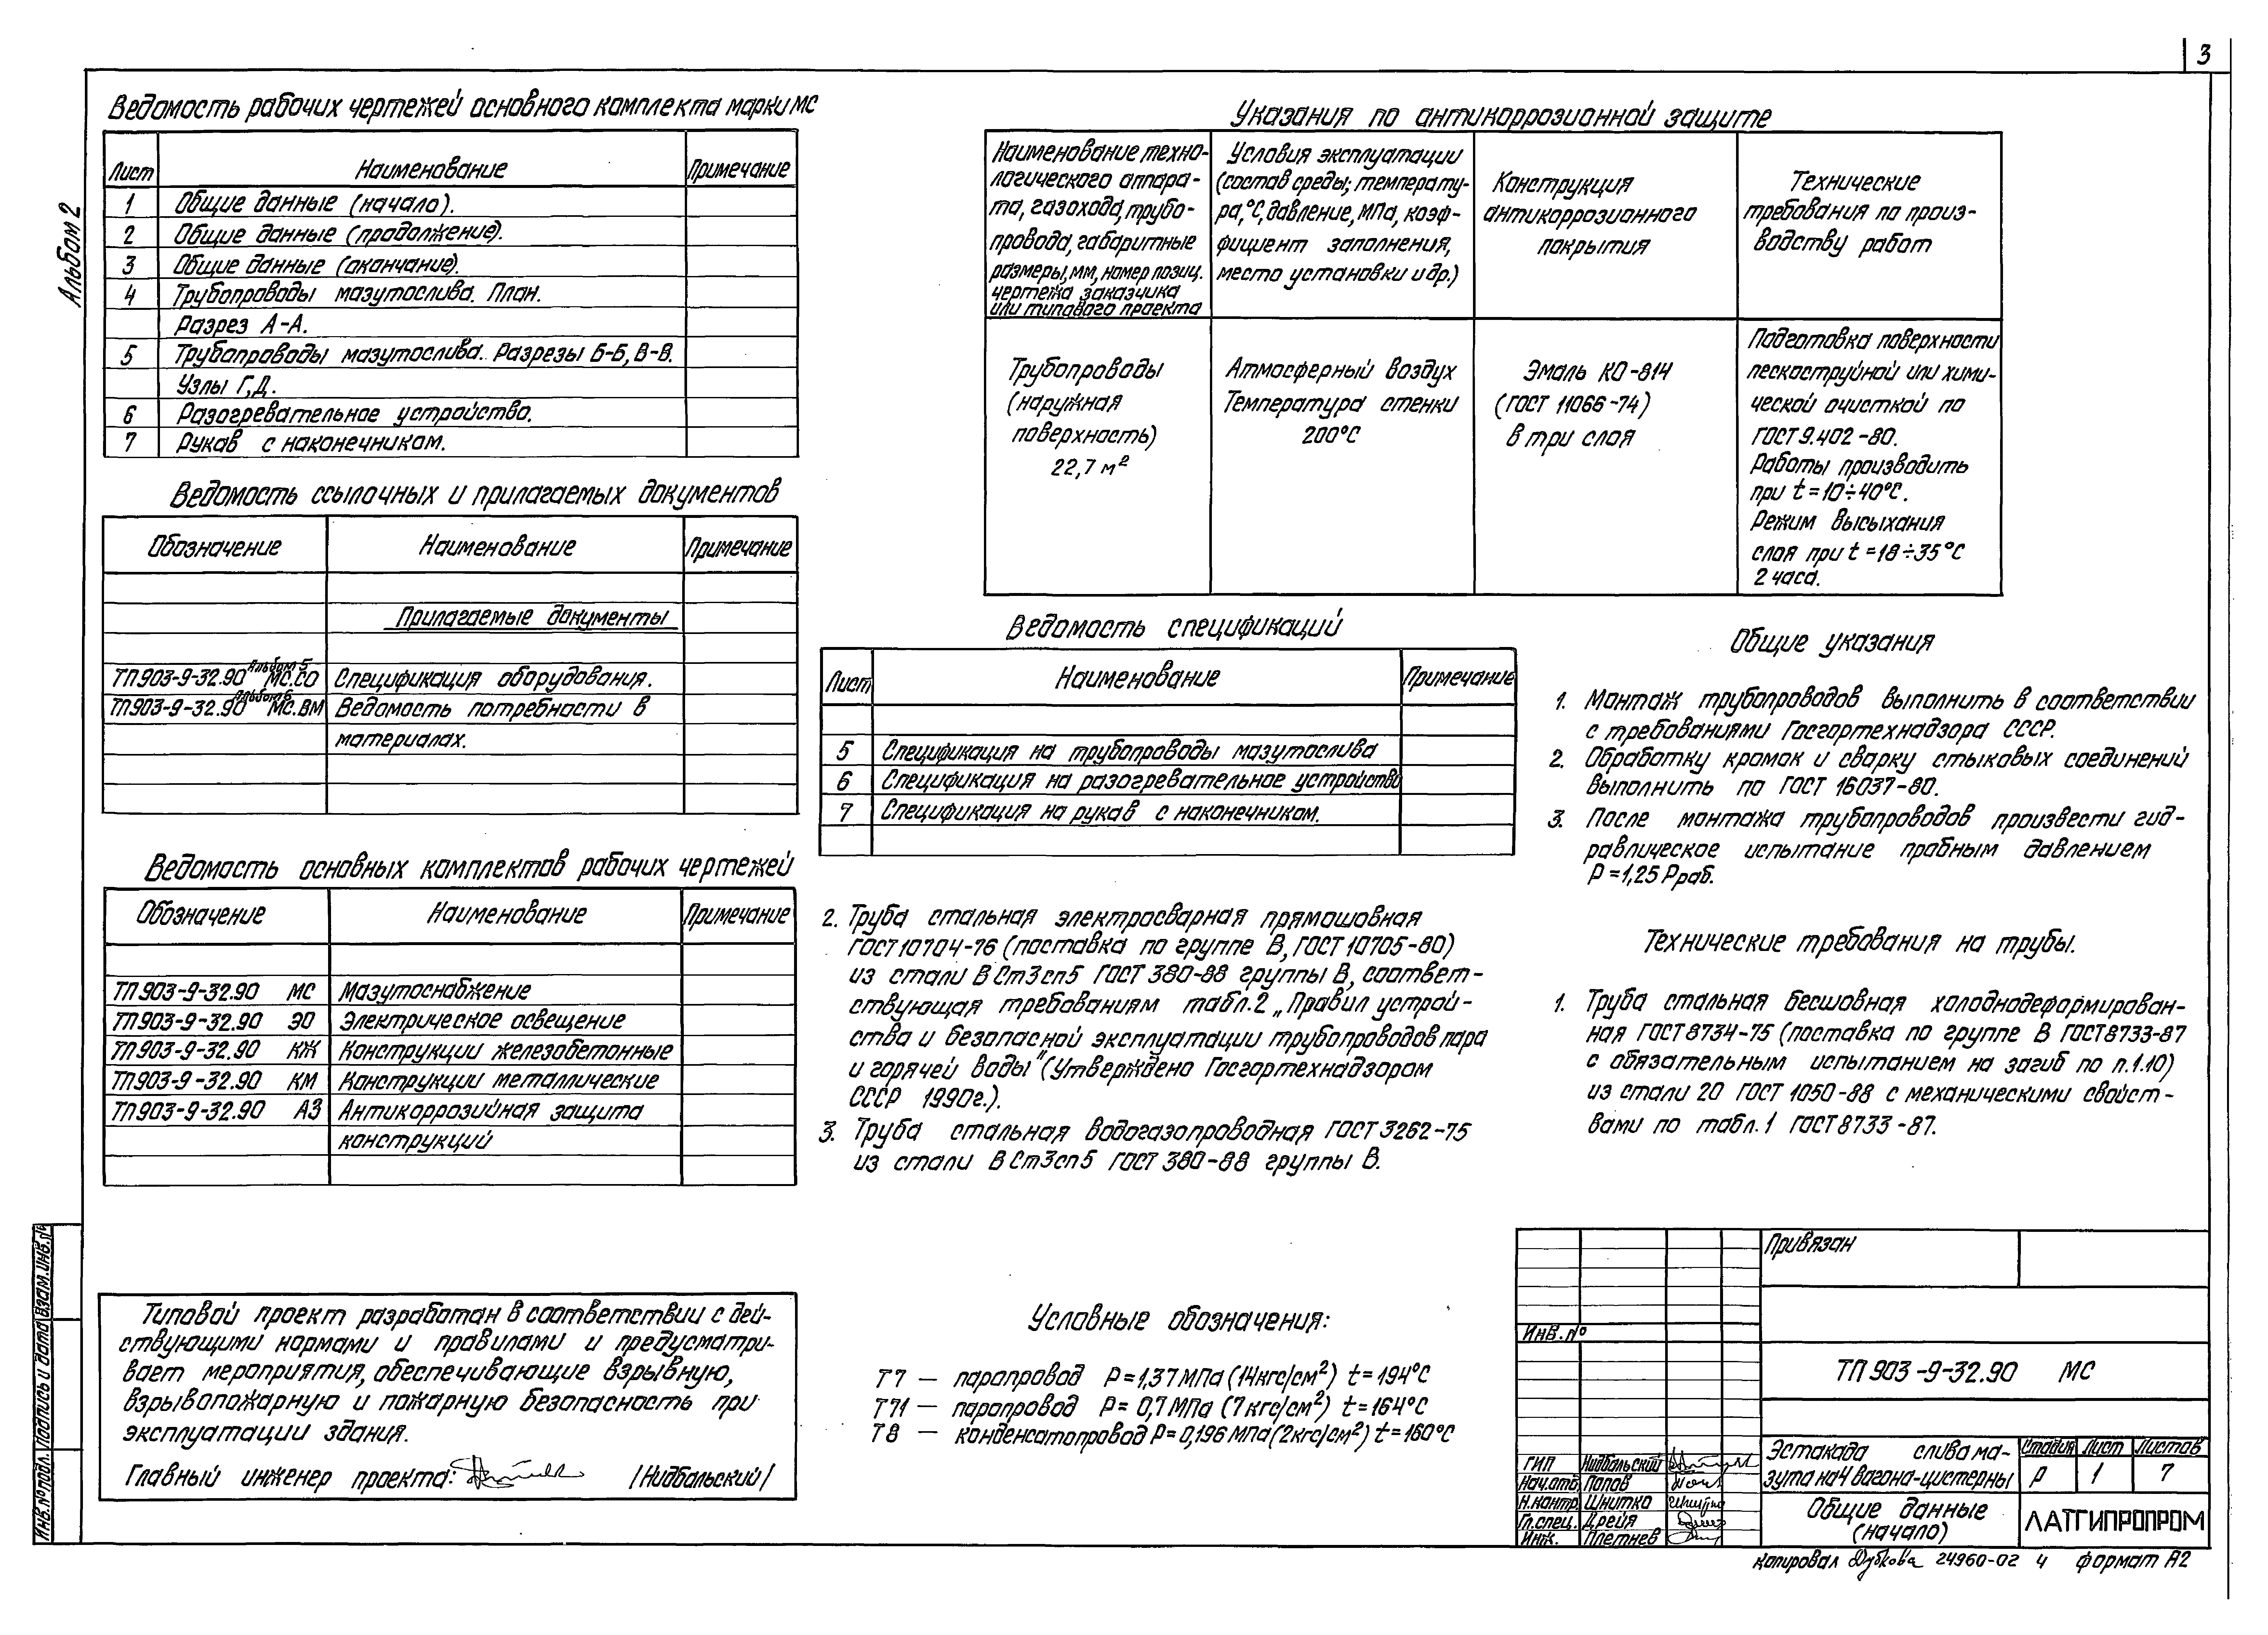 3
Альбом 2
Ведомость рабочих чертежей основного комплекта марки МС
Лист Наименование Примечание
1 Общие данные (начало).
2 Общие данные (продолжение).
3 Общие данные (окончание).
4 Трубопроводы мазутослива. План.
Разрез А-А.
5 Трубопроводы мазутослива. Разрезы Б-Б, В-В.
Узлы Г,Д.
6 Разогревательное устройство.
7 Рукав с наконечником.
Ведомость ссылочных и прилагаемых документов
Обозначение Наименование Примечание
Прилагаемые документы
Альбом 5
ТП 903-9-32.90 МС.СО Спецификация оборудования.
Альбом 6
ТП 903-9-32.90 МС.ВМ Ведомость потребности в
материалах.
Ведомость основных комплектов рабочих чертежей
Обозначение Наименование Примечание
ТП 903-9-32.90 МС Мазутоснабжение
ТП 903-9-32.90 ЭО Электрическое освещение
ТП 903-9-32.90 КЖ Конструкции железобетонные
ТП 903-9-32.90 КМ Конструкции металлические
ТП 903-9-32.90 АЗ Антикоррозийная защита
конструкций
Типовой проект разработан в соответствии с дей-
ствующими нормами и правилами и предусматри-
вает мероприятия, обеспечивающие взрывную,
взрывопожарную и пожарную безопасность при
эксплуатации здания.
Главный инженер проекта: /Нидбальский/
Указания по антикоррозионной защите
Наименование техно-
логического аппара-
та, газохода, трубо-
провода, габаритные
размеры, мм, номер позиц.
чертежа заказчика
или типового проекта
Условия эксплуатации
(состав среды; температу-
ра, °С, давление, МПа, коэф-
фициент заполнения,
место установки и др.)
Конструкция
антикоррозионного
покрытия
Технические
требования по произ-
водству работ
Трубопроводы
(наружная
поверхность)
22,7 м²
Атмосферный воздух
Температура стенки
200°С
Эмаль КО-814
(ГОСТ 11066-74)
в три слоя
Подготовка поверхности
пескоструйной или хими-
ческой очисткой по
ГОСТ 9.402-80.
Работы производить
при t=10÷40°С.
Режим высыхания
слоя при t=18÷35°С
2 часа.
Ведомость спецификаций
Лист Наименование Примечание
5 Спецификация на трубопроводы мазутослива
6 Спецификация на разогревательное устройство
7 Спецификация на рукав с наконечником.
2. Труба стальная электросварная прямошовная
ГОСТ 10704-76 (поставка по группе В, ГОСТ 10705-80)
из стали ВСт3сп5 ГОСТ 380-88 группы В, соответ-
ствующая требованиям табл.2 „Правил устрой-
ства и безопасной эксплуатации трубопроводов пара
и горячей воды" (Утверждено Госгортехнадзором
СССР 1990г.).
3. Труба стальная водогазопроводная ГОСТ 3262-75
из стали ВСт3сп5 ГОСТ 380-88 группы В.
Условные обозначения:
Т7 — паропровод Р=1,37МПа (14кгс/см²) t=194°С
Т71 — паропровод Р=0,7МПа (7кгс/см²) t=164°С
Т8 — конденсатопровод Р=0,196МПа (2кгс/см²) t=160°С
Общие указания
1. Монтаж трубопроводов выполнить в соответствии
с требованиями Госгортехнадзора СССР.
2. Обработку кромок и сварку стыковых соединений
выполнить по ГОСТ 16037-80.
3. После монтажа трубопроводов произвести гид-
равлическое испытание пробным давлением
Р=1,25 Рраб.
Технические требования на трубы.
1. Труба стальная бесшовная холоднодеформирован-
ная ГОСТ 8734-75 (поставка по группе В ГОСТ 8733-87
с обязательным испытанием на загиб по п.1.10)
из стали 20 ГОСТ 1050-88 с механическими свойст-
вами по табл.1 ГОСТ 8733-87.
Привязан
Инв.№
ТП 903-9-32.90 МС
ГИП Нидбальский
Нач.отд. Попов
Н.контр. Шнитко
Гл.спец. Дрейя
Инж. Плетнев
Эстакада слива ма-
зута на 4 вагона-цистерны
Стадия Лист Листов
Р 1 7
Общие данные
(начало)
ЛАТГИПРОПРОМ
Копировал Дубкова 24960-02 4 формат А2
Инв.№ подл. Подпись и дата Взам.инв.№